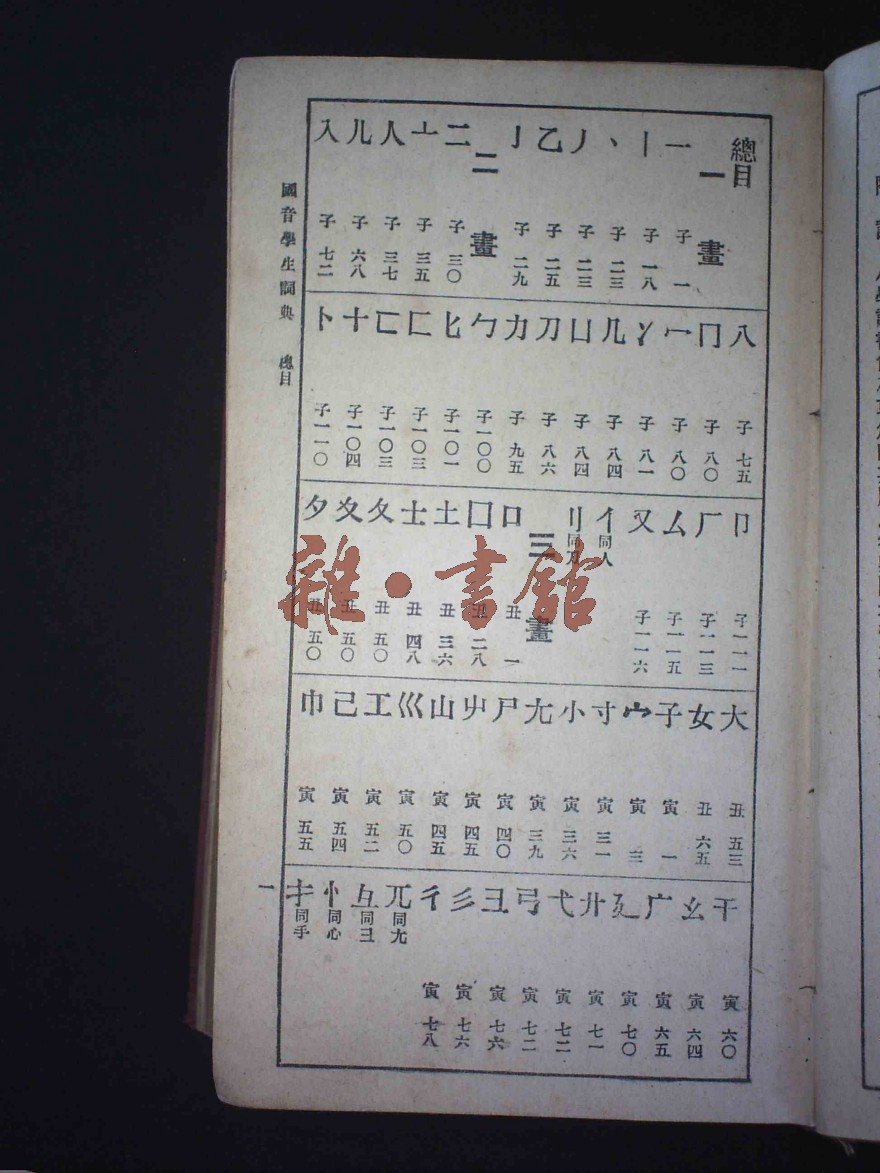 總目
一畫
一 子 一
丨 子 一八
丶 子 二三
丿 子 二三
乙 子 二五
亅 子 二九
二畫
二 子 三〇
亠 子 三五
人 子 三七
儿 子 六八
入 子 七二
八 子 七五
冂 子 八〇
冖 子 八〇
冫 子 八一
几 子 八四
凵 子 八四
刀 子 八六
力 子 九五
勹 子一〇〇
匕 子一〇一
匚 子一〇三
匸 子一〇三
十 子一〇四
卜 子一一〇
卩 子一一一
厂 子一一三
厶 子一一五
又 子一一六
亻同人
刂同刀
三畫
口 丑 一
囗 丑 二八
土 丑 三六
士 丑 四八
夂 丑 五〇
夊 丑 五〇
夕 丑 五〇
大 丑 五三
女 丑 六五
子 寅 一
宀 寅 三
寸 寅 三一
小 寅 三六
尢 寅 三九
尸 寅 四〇
屮 寅 四五
山 寅 四五
巛 寅 五〇
工 寅 五二
己 寅 五四
巾 寅 五五
干 寅 六〇
幺 寅 六四
广 寅 六五
廴 寅 七〇
廾 寅 七一
弋 寅 七二
弓 寅 七二
彐 寅 七六
彡 寅 七六
彳 寅 七八
兀同尢
彑同彐
忄同心
扌同手
國音學生詞典 總目
一
雜·書館